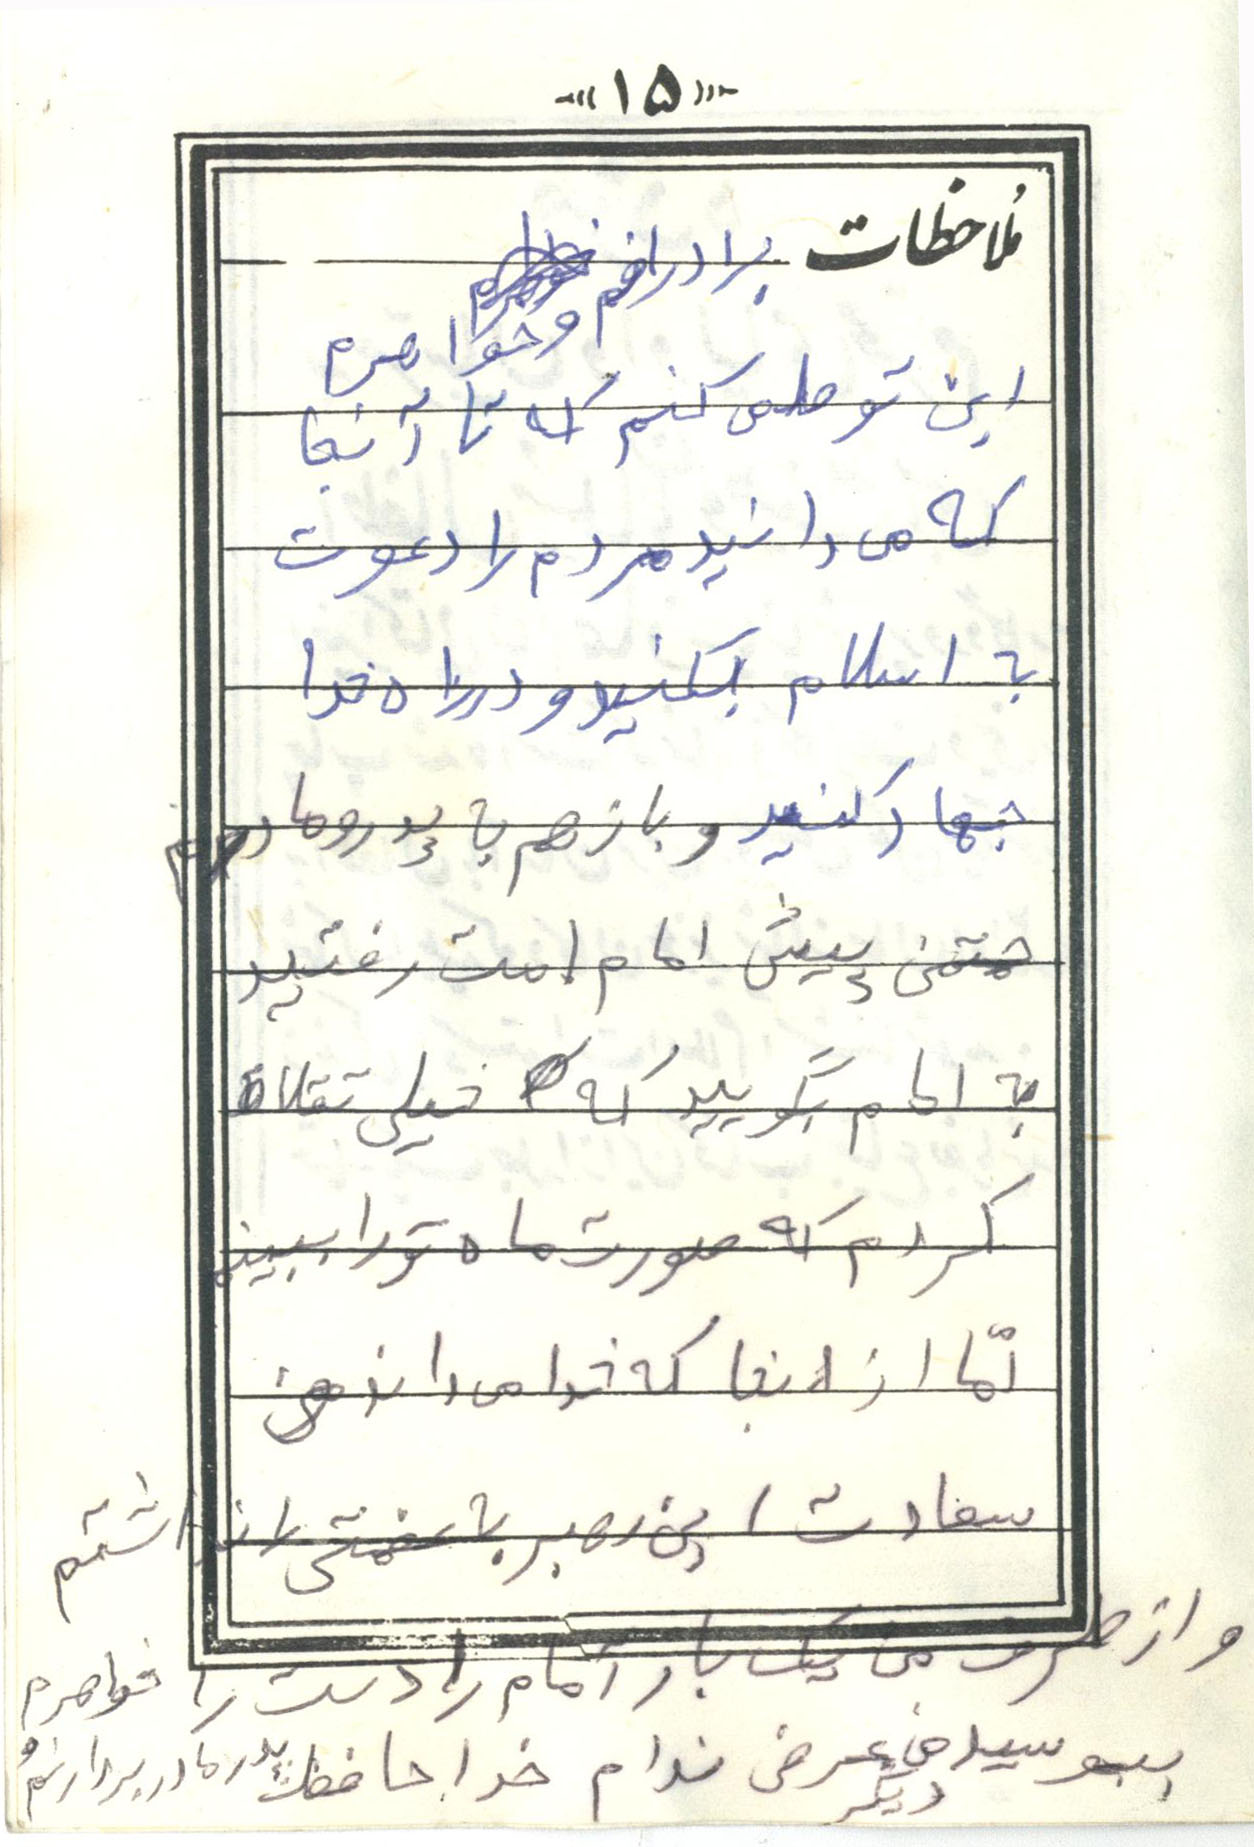 ۱۵
ملاحظات برادرانم
و خواهرم
این توصیه می کنم که تا آنجا
که می دانید مردم را دعوت
به اسلام بکنید و در راه خدا
جهاد کنید و باز هم به پدر و مادرم
پیش امام امت رفتید
به امام بگویید که خیلی تقلاه
کردم که صورت ماه تو را ببینم
امّا از انجا که خدا می داند من
سعادت این رهبر به را نداشتم
و از طرف من یک بار امام را دست را
ببوسید من عرضی ندام خدا حافظ
دیگر
پدر مادر بردارنم و
خواهرم